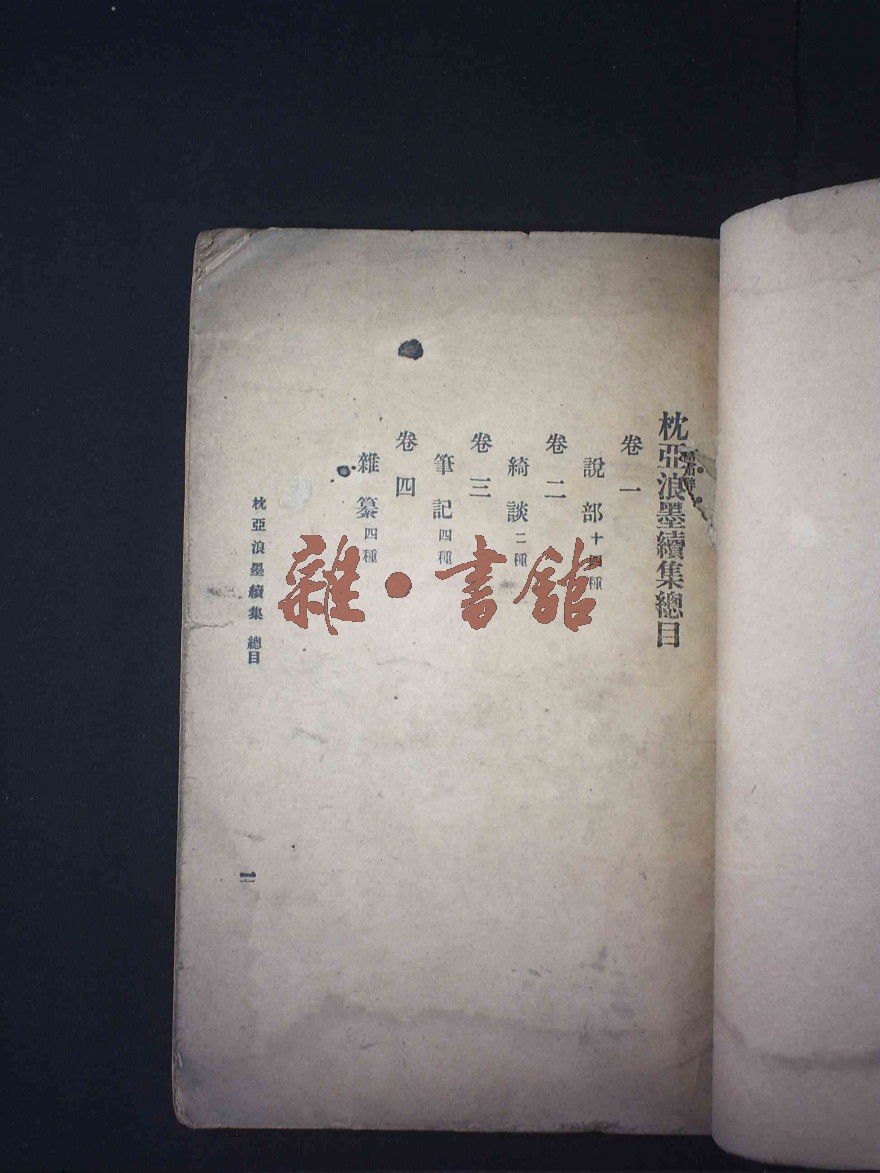 枕亞浪墨續集總目
卷一
說部十四種
卷二
綺談二種
卷三
筆記四種
卷四
雜纂四種
枕亞浪墨續集 總目
一
雜·書館